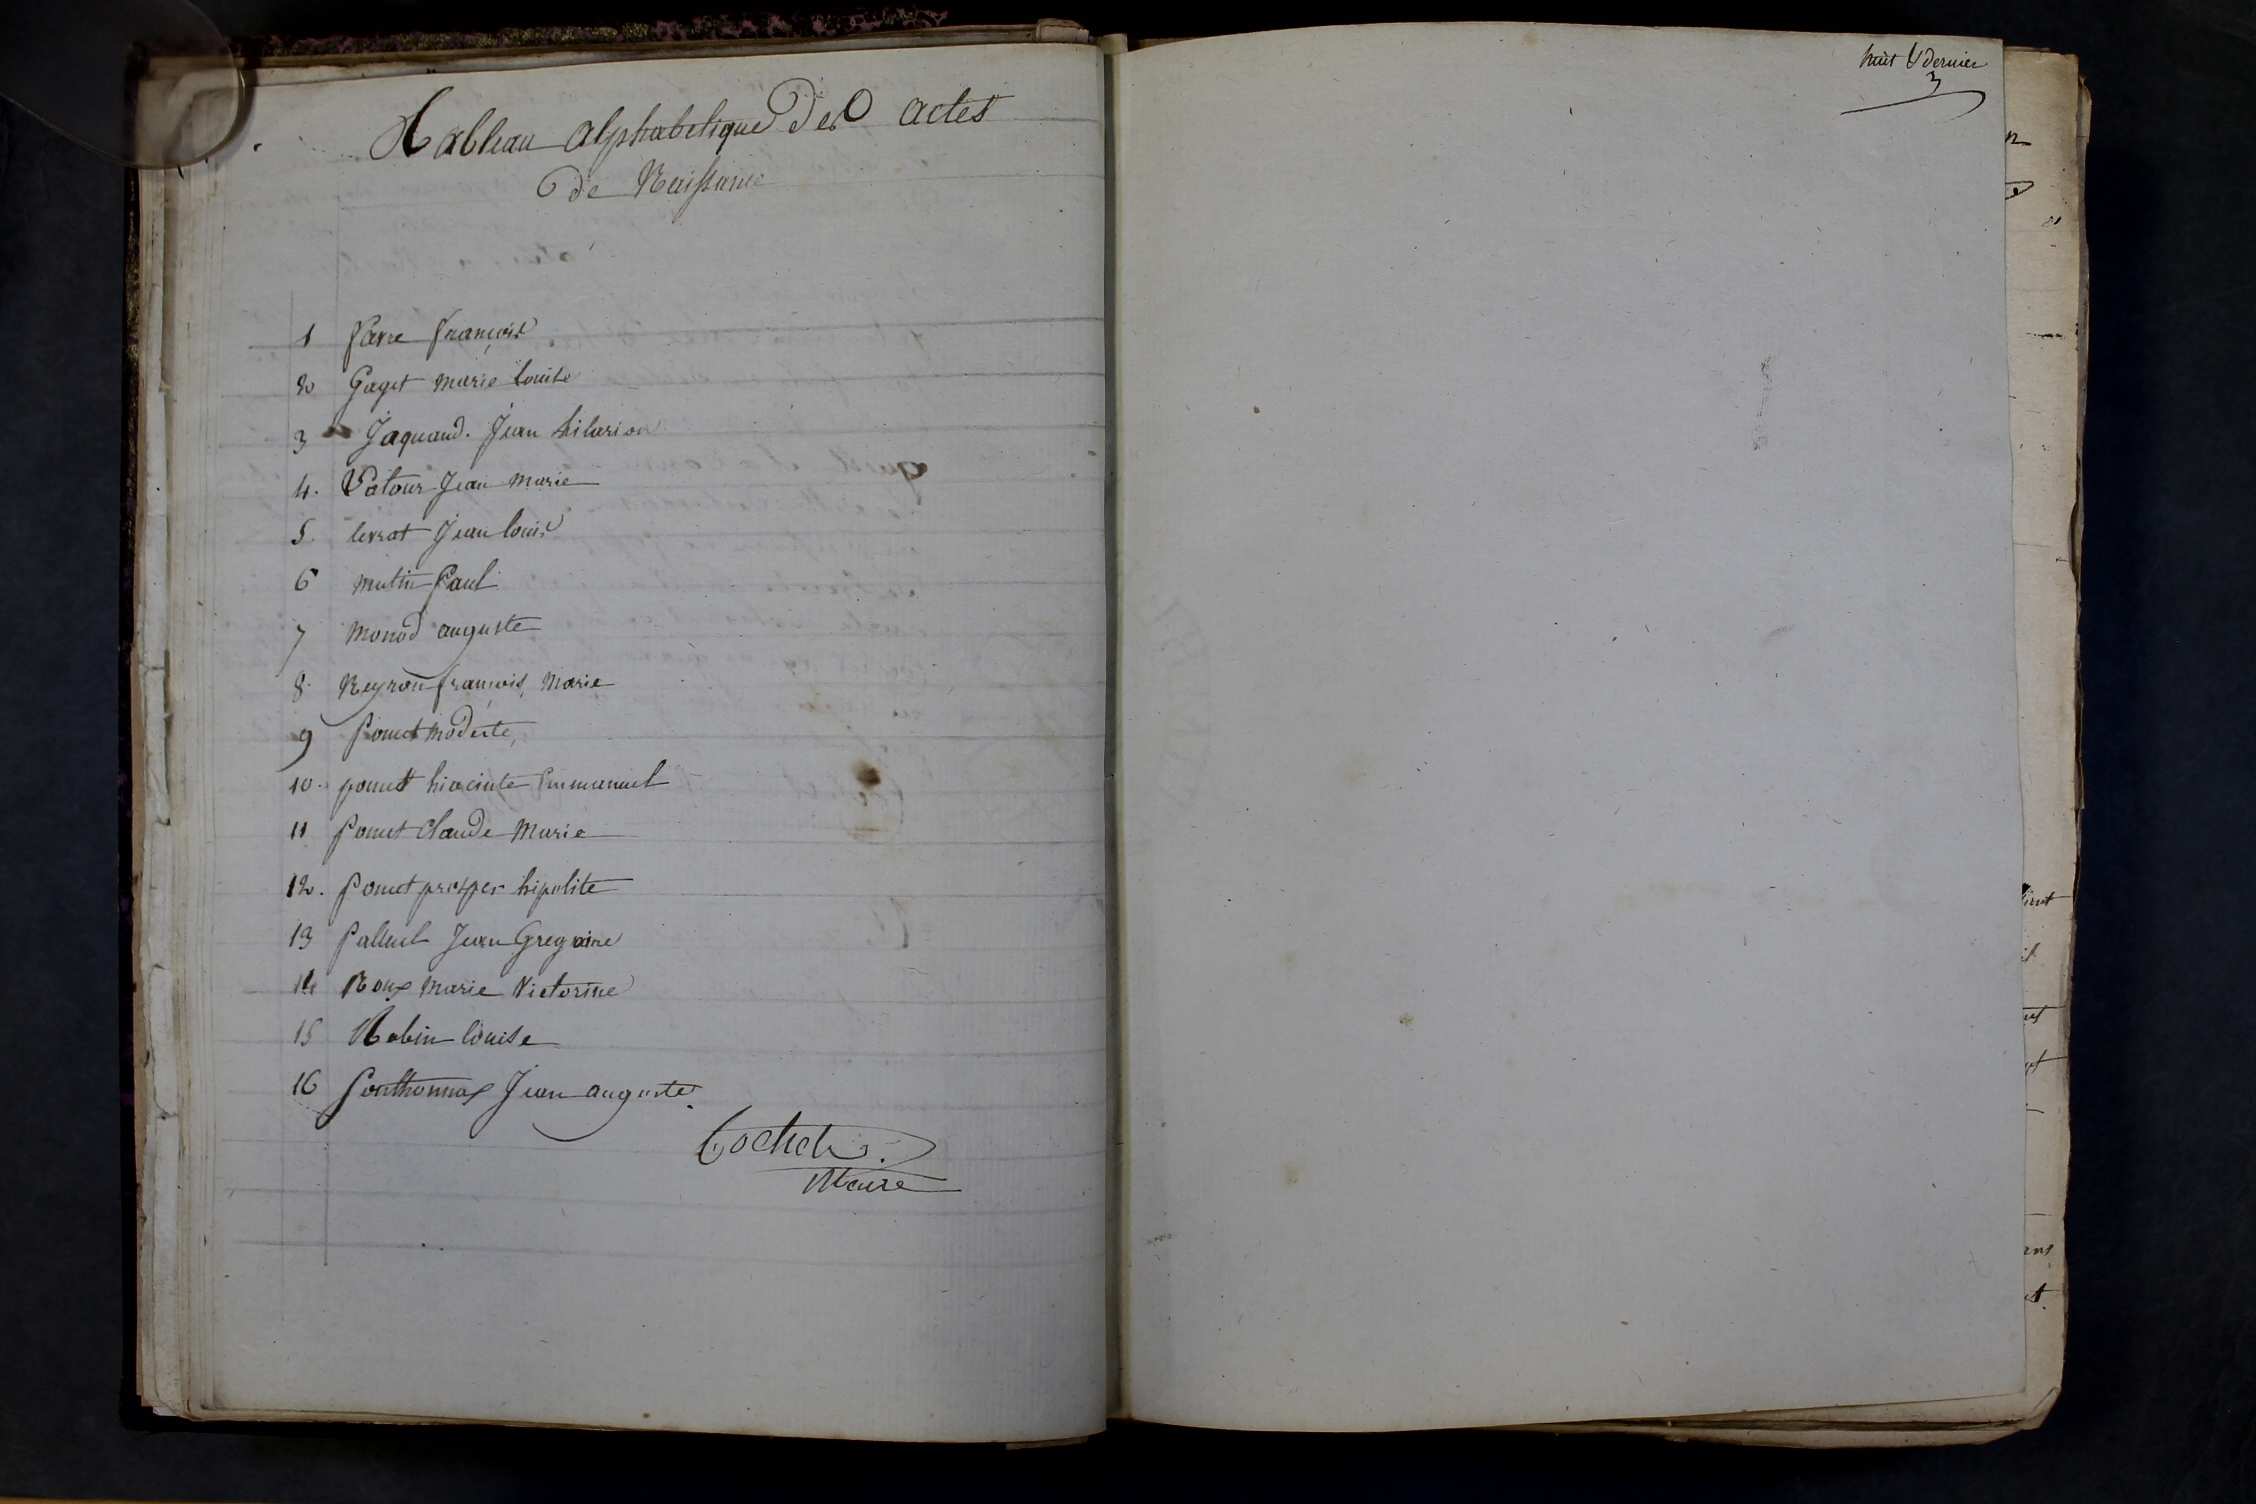 Tableau alphabetique des actes
de Naissance
1 Favre françois
2 Gaget marie louise
3 Jaquand. Jean hilarion
4. Latour Jean Marie
5. levrat Jean louis
6 mutin Paul
7 monod auguste
8. Neyron françois, Marie
9 Ponet modeste,
10. ponet hiacinte Emmanuel
11 Ponet Claude Marie
12. Ponet prosper hipolite
13 Palluel Jean Gregoire
14 Roux Marie Victorine
15 Robin louise
16 Sonthonnax Jean auguste.
Cochet
Maire
huit & dernier